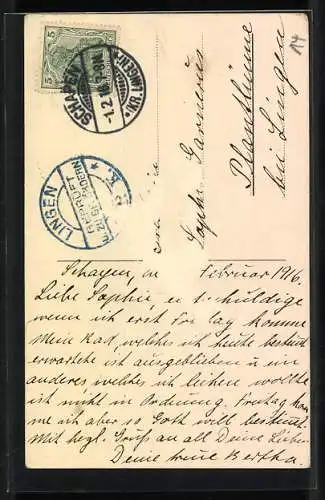 5
SCHAPEN
1.2.16. 2-3N.
*(KR. LINGEN)*
14
LINGEN
GEPRÜFT
ZU BEFÖRDERN
Sophie
Plantlünne
bei Lingen
Schapen, Februar 1916.
Liebe Sophie,
wenn ich erst komme
Mein Rad, welches ich heute bestimmt
erwartete ist ausgeblieben u. ein
anderes welches ich leihen wollte
ist nicht in Ordnung. Freitag
ich aber so Gott will bestimmt.
Mit hrzl. Gruß an all Deine Lieben
Deine treue Bertha.